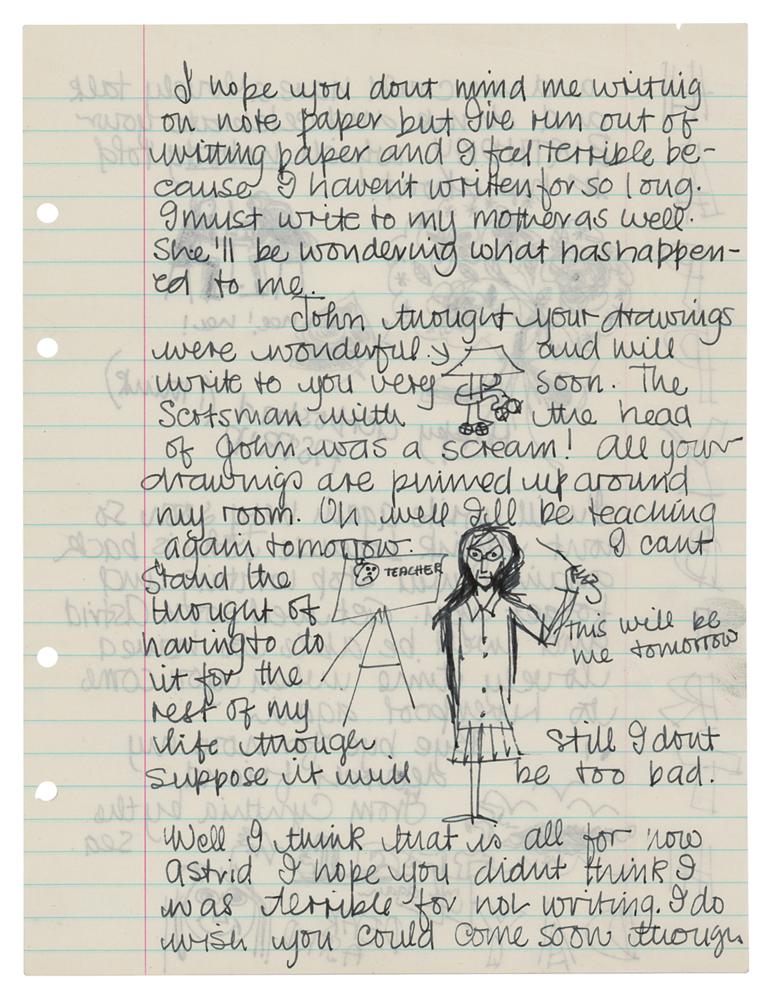 I hope you dont mind me writing
on note paper but I've run out of
writing paper and I feel terrible be-
cause I haven't written for so long.
I must write to my mother as well.
She'll be wondering what has happen-
ed to me.
John thought your drawings
were wonderful and will
write to you very soon. The
Scotsman with the head
of John was a scream! All your
drawings are pinned up around
my room. Oh well I'll be teaching
again tomorrow. I cant
TEACHER
stand the
thought of
having to do
it for the
rest of my
life though
this will be
me tomorrow
Still I dont
suppose it will be too bad.
Well I think that is all for now
Astrid I hope you didnt think I
was terrible for not writing. I do
wish you could come soon though.